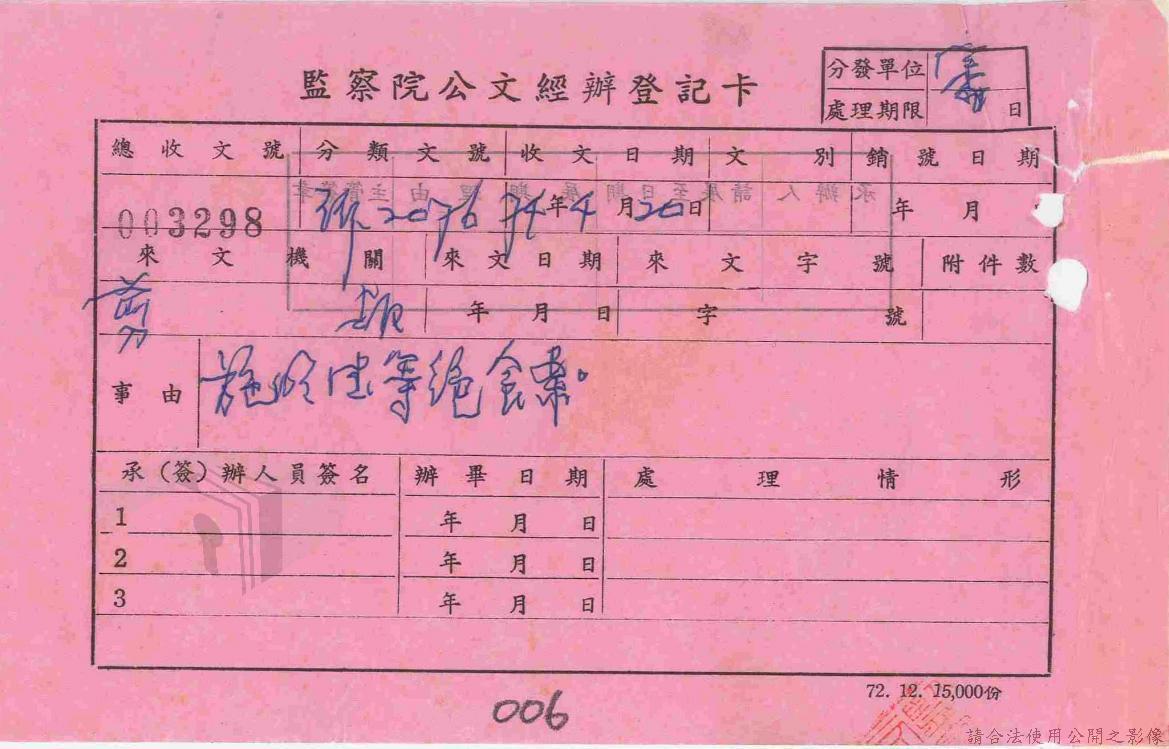 監察院公文經辦登記卡
分發單位
處理期限 日
總收文號 分類文號 收文日期 文別 銷號日期
003298 2076 74年4月20日 年 月
來文機關 來文日期 來文字號 附件數
剪 報 年 月 日 字 號
事由 施明德等絕食案。
承(簽)辦人員簽名 辦畢日期 處理情形
1 年 月 日
2 年 月 日
3 年 月 日
72. 12. 15,000份
006
請合法使用公開之影像